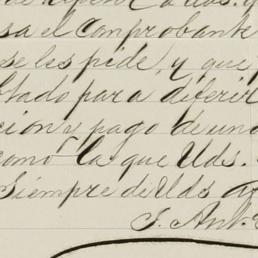 sa el comprobante
se les pide, y que
ptado para diferir
cion y pago de un
como la que Uds.
Siempre de Uds
S. Ant.